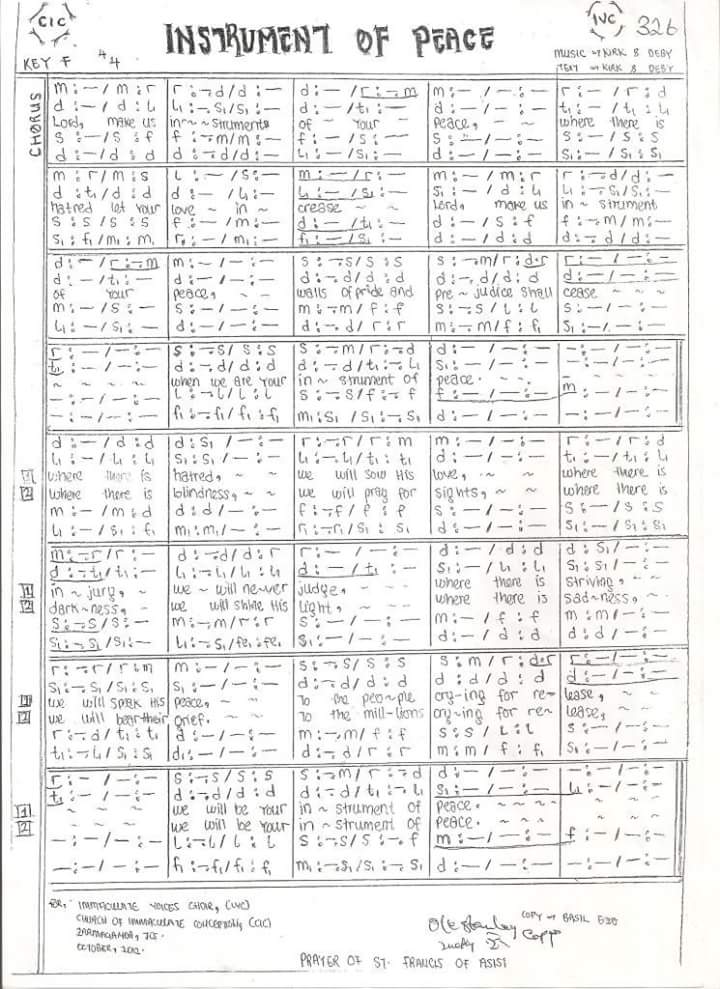 CIC
IVC
326
INSTRUMENT OF PEACE
KEY F 4/4
MUSIC KIRK & DEBY
TEXT KIRK & DEBY
CHORUS
m : – / m : r | r : – d / d : – | d : – / r : – m | m : – / – : – | r : – / r : d
d : – / d : l₁ | l₁ : – s₁ / s₁ : – | d : – / t₁ : – | d : – / – : – | t₁ : – / t₁ : l₁
Lord, make us | in ~ ~ struments | of ~ Your ~ | Peace, ~ ~ | where there is
s : – / s : f | f : – m / m : – | f : – / s : – | s : – / – : – | s : – / s : s
d : – / d : d | d : – d / d : – | l₁ : – / s₁ : – | d : – / – : – | s₁ : – / s₁ : s₁
m : r / m : s | l : – / s : – | m : – / r : – | m : – / m : r | r : – d / d : –
d : t₁ / d : d | d : – / l₁ : – | l₁ : – / s₁ : – | s₁ : – / d : l₁ | l₁ : – s₁ / s₁ : –
hatred let Your | love ~ in ~ | crease ~ ~ | Lord, make us | in ~ strument
s : s / s : s | f : – / m : – | d : – / t₁ : – | d : – / s : f | f : – m / m : –
s₁ : f₁ / m₁ : m₁ | r₁ : – / m₁ : – | f₁ : – / s₁ : – | d : – / d : d | d : – d / d : –
d : – / r : – m | m : – / – : – | s : – s / s : s | s : – m / r : d.r | r : – / – : –
d : – / t₁ : – | d : – / – : – | d : – d / d : d | d : – d / d : d | d : – / – : –
of Your | peace, ~ ~ | walls of pride and | pre ~ judice shall | cease ~ ~ ~
m : – / s : – | s : – / – : – | m : – m / f : f | s : – s / l : l | s : – / – : –
l₁ : – / s₁ : – | d : – / – : – | d : – d / r : r | m : – m / f : f₁ | s₁ : – / – : –
r : – / – : – | s : – s / s : s | s : – m / r : – d | d : – / – : – | – : – / – : –
t₁ : – / – : – | d : – d / d : d | d : – d / t₁ : – l₁ | s₁ : – / – : – | – : – / – : –
~ ~ ~ ~ | when we are Your | in ~ strument of | peace. ~ ~
– : – / – : – | l : – l / l : l | s : – s / f : – f | f : – / – : – | m : – / – : –
– : – / – : – | f₁ : – f₁ / f₁ : f₁ | m₁ : s₁ / s₁ : – s₁ | d : – / – : – | – : – / – : –
d : – / d : d | d : s₁ / – : – | r : – r / r : m | m : – / – : – | r : – / r : d
l₁ : – / l₁ : l₁ | s₁ : s₁ / – : – | l₁ : – l₁ / t₁ : t₁ | d : – / – : – | t₁ : – / t₁ : l₁
[1] where there is | hatred, ~ ~ | we will sow His | love, ~ ~ | where there is
[2] where there is | blindness, ~ ~ | we will pray for | sights, ~ ~ | where there is
m : – / m : d | d : d / – : – | f : – f / f : f | s : – / – : – | s : – / s : s
l₁ : – / s₁ : f₁ | m₁ : m₁ / – : – | r₁ : – r₁ / s₁ : s₁ | d : – / – : – | s₁ : – / s₁ : s₁
m : – r / r : – | d : – d / d : r | r : – / – : – | d : – / d : d | d : s₁ / – : –
d : – t₁ / t₁ : – | l₁ : – l₁ / l₁ : l₁ | d : – / t₁ : – | s₁ : – / l₁ : l₁ | s₁ : s₁ / – : –
[1] in ~ jury, ~ | we ~ will never | judge, ~ ~ | where there is | striving, ~ ~
[2] dark ~ness, ~ | we will shine His | light, ~ ~ | where there is | sad~ness, ~
s : – s / s : – | m : – m / r : r | s : – / – : – | m : – / f : f | m : m / – : –
s₁ : – s₁ / s₁ : – | l₁ : – s₁ / fe₁ : fe₁ | s₁ : – / – : – | d : – / d : d | d : d / – : –
r : – r / r : m | m : – / – : – | s : – s / s : s | s : m / r : d.r | r : – / – : –
s₁ : – s₁ / s₁ : s₁ | s₁ : – / – : – | d : – d / d : d | d : d / d : d | d : – / – : –
[1] we will speak His | peace, ~ ~ | To the peo~ple | cry-ing for re~ | lease, ~ ~
[2] we will bear their | grief. ~ ~ | To the mill-lions | cry-ing for re~ | lease, ~ ~
r : – d / t₁ : t₁ | d : – / – : – | m : – m / f : f | s : s / l : l | s : – / – : –
t₁ : – l₁ / s₁ : s₁ | d₁ : – / – : – | d : – d / r : r | m : m / f : f₁ | s₁ : – / – : –
r : – / – : – | s : – s / s : s | s : – m / r : – d | d : – / – : – | – : – / – : –
t₁ : – / – : – | d : – d / d : d | d : – d / t₁ : – l₁ | s₁ : – / – : – | l₁ : – / – : –
[1] ~ ~ ~ | we will be Your | in ~ strument of | Peace. ~ ~ ~ | ~ ~ ~ ~
[2] ~ ~ ~ | we will be Your | in ~ strument of | Peace. ~ ~ ~ | ~ ~ ~ ~
– : – / – : – | l : – l / l : l | s : – s / s : – f | m : – / – : – | f : – / – : –
– : – / – : – | f₁ : – f₁ / f₁ : f₁ | m₁ : – s₁ / s₁ : – s₁ | d : – / – : – | – : – / – : –
FOR, IMMACULATE VOICES CHOIR, (IVC)
CHURCH OF IMMACULATE CONCEPTION, (CIC)
ZARMAGANDA, JOS.
OCTOBER, 2012.
COPY BASIL
PRAYER OF ST. FRANCIS OF ASISI